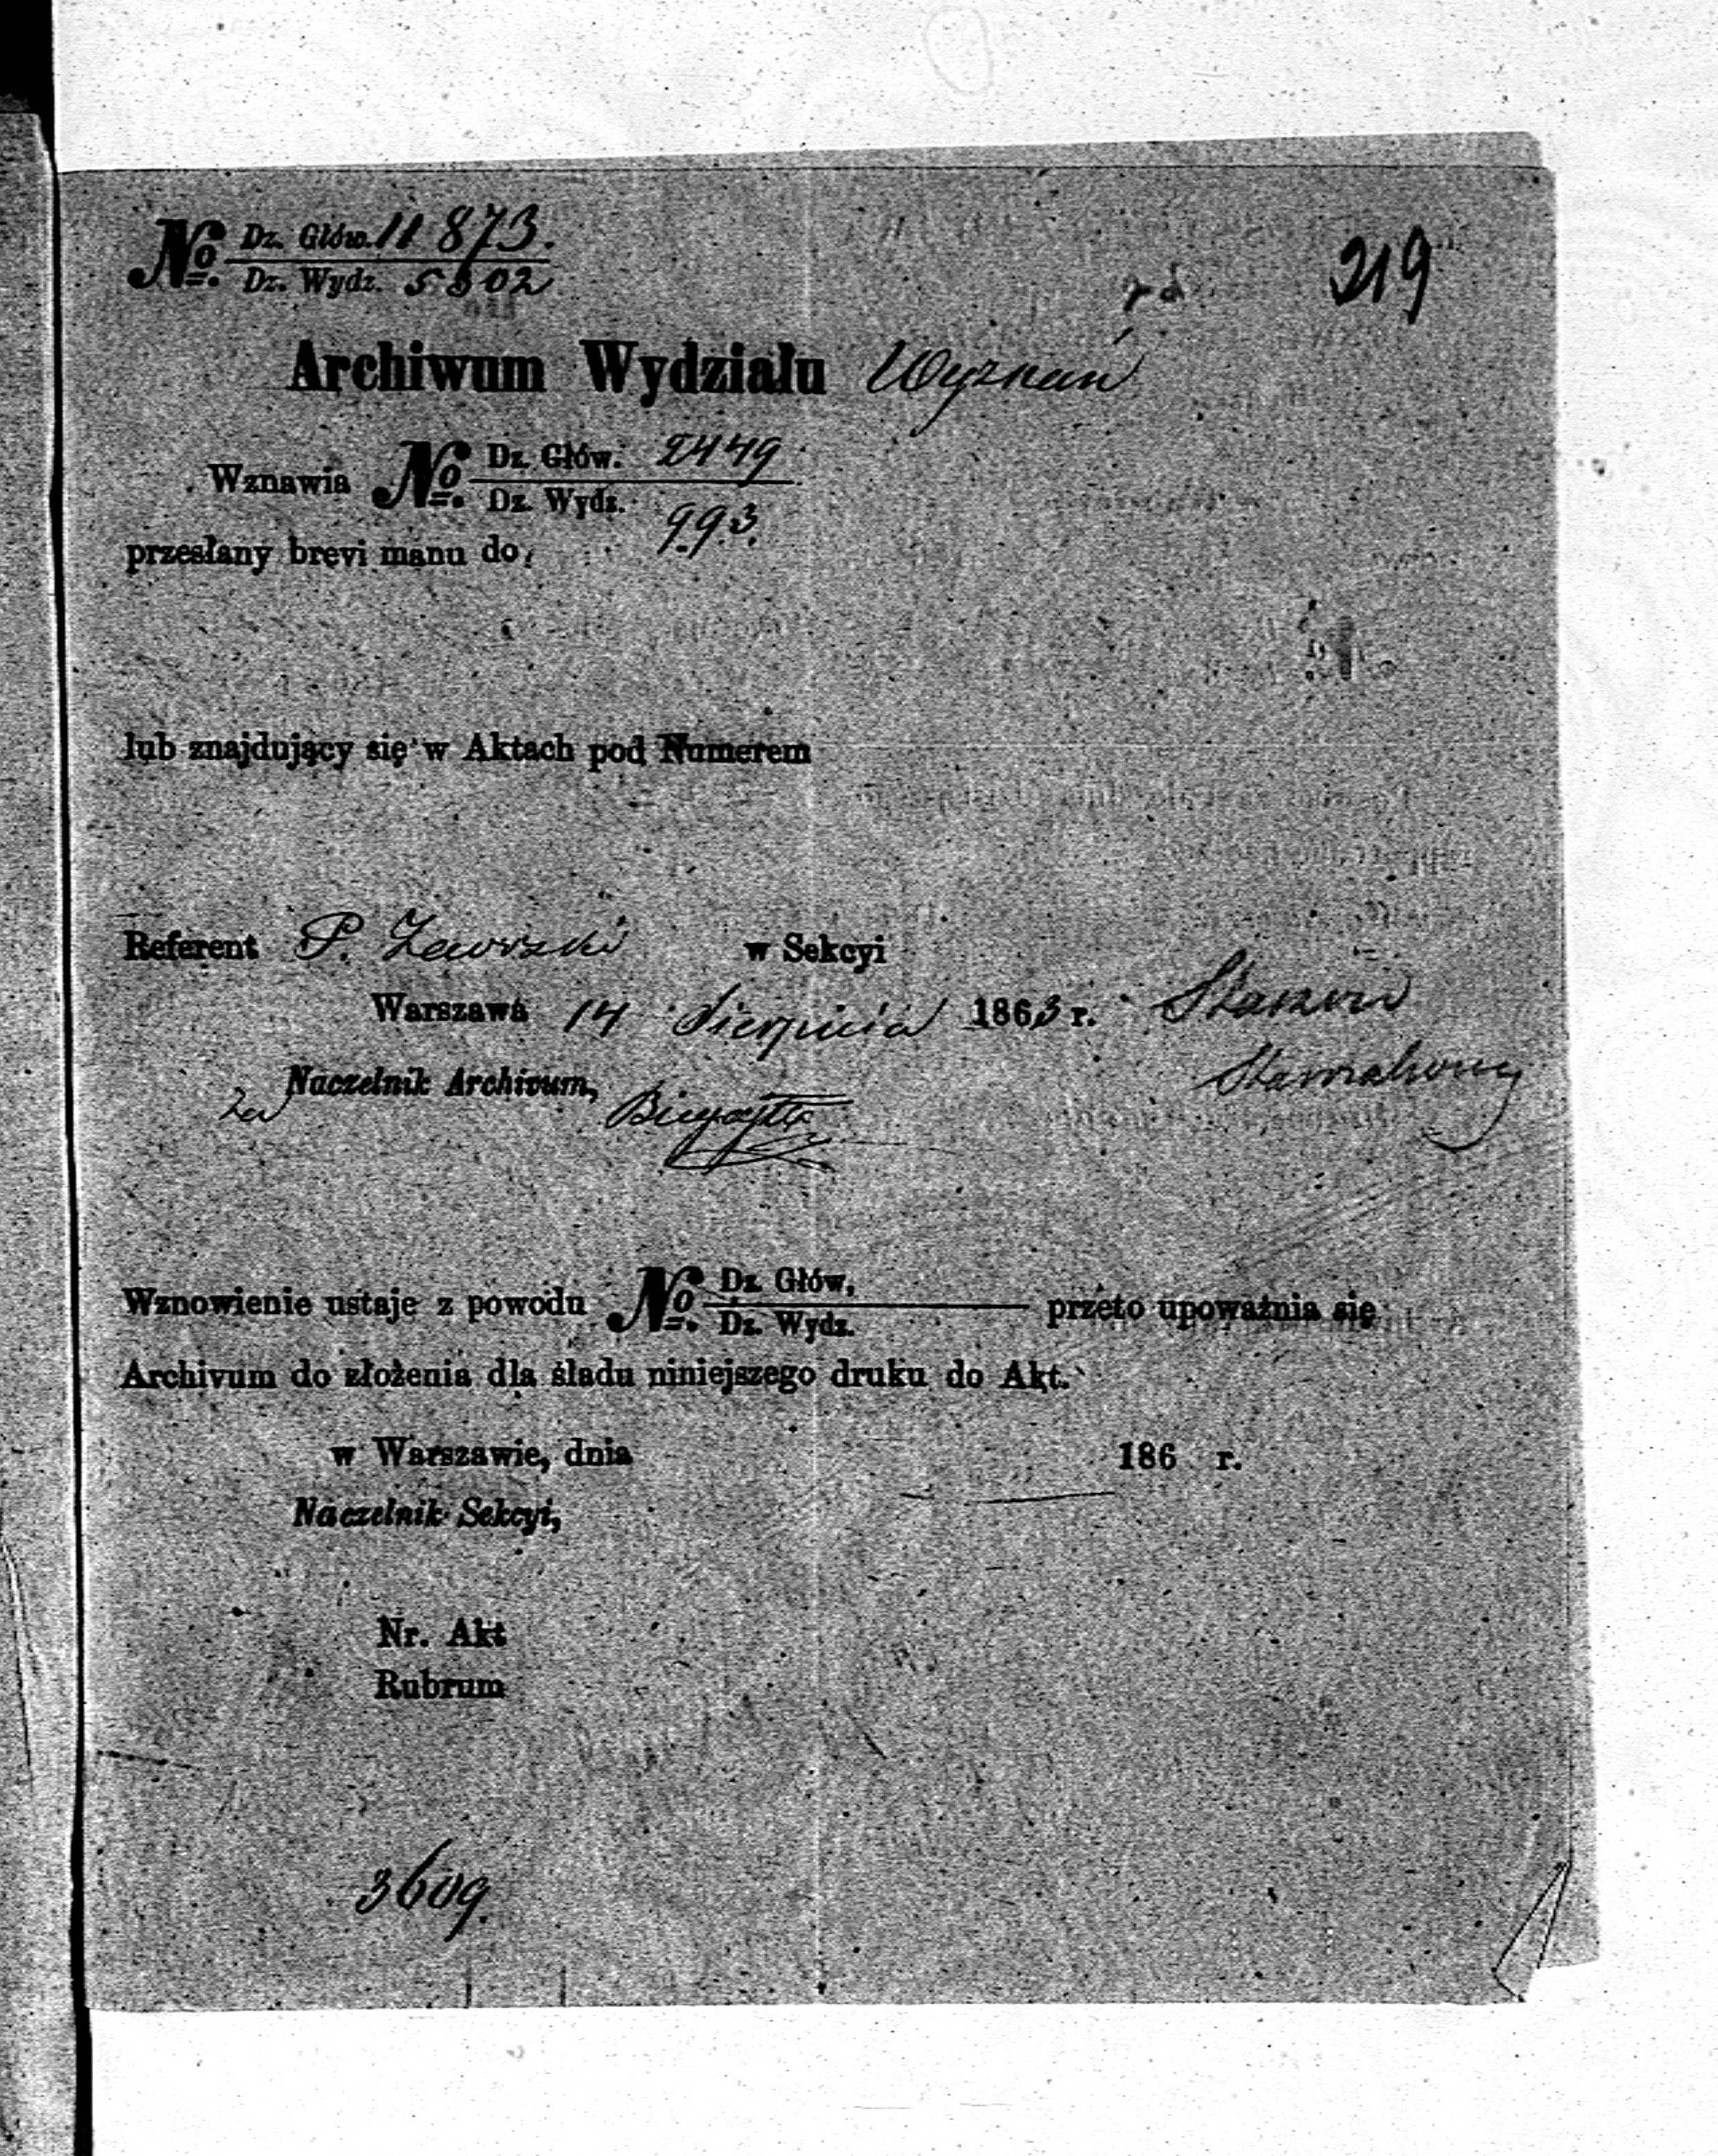 № Dz. Głów. 11873.
Dz. Wydz. 5302
219
Archiwum Wydziału Wyznań
Wznawia № Dz. Głów. 2449
Dz. Wydz. 993.
przesłany brevi manu do
lub znajdujący się w Aktach pod Numerem
Referent P. w Sekcyi
Warszawa 14 Sierpnia 1863 r.
Za Naczelnik Archivum,
Wznowienie ustaje z powodu № Dz. Głów, przeto upoważnia się
Dz. Wydz.
Archivum do złożenia dla śladu niniejszego druku do Akt.
w Warszawie, dnia 186 r.
Naczelnik Sekcyi,
Nr. Akt
Rubrum
3609